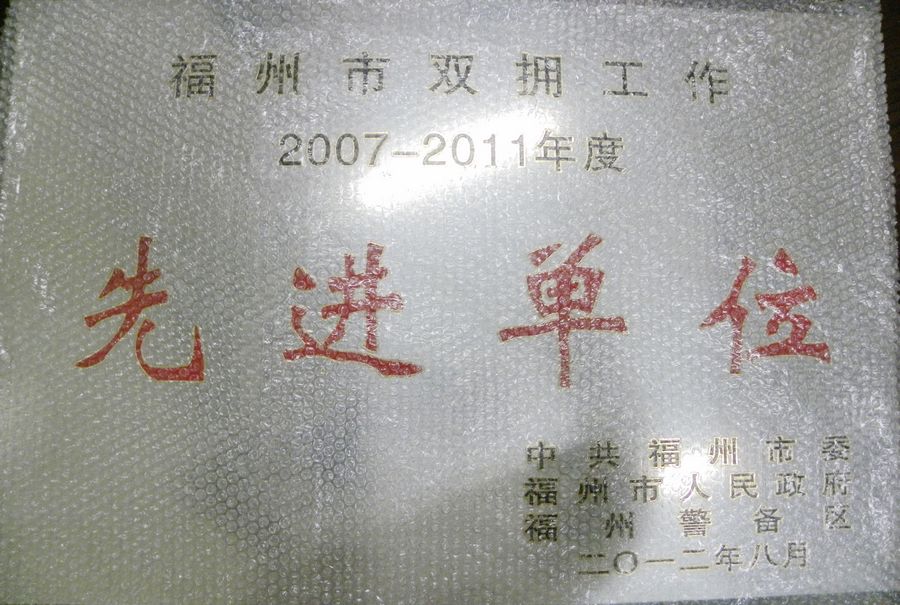 福州市双拥工作
2007-2011年度
先进单位
中共福州市委
福州市人民政府
福州警备区
二〇一二年八月